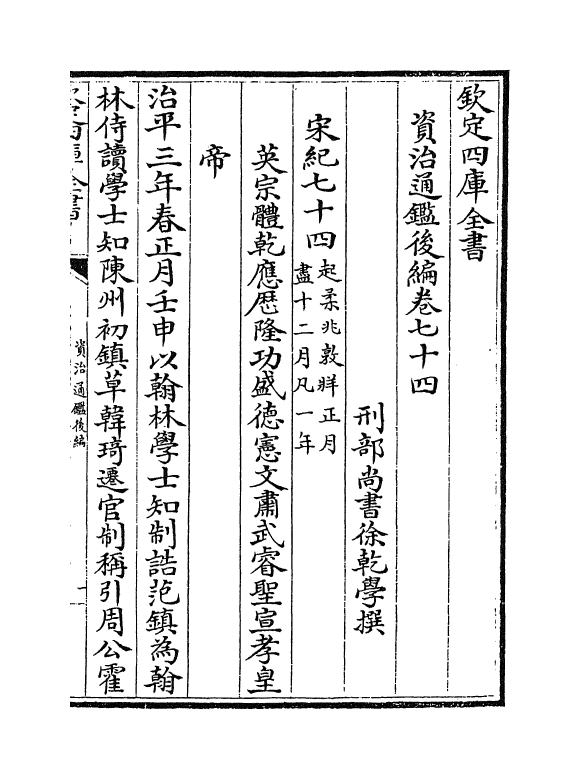 欽定四庫全書
資治通鑑後編卷七十四
刑部尚書徐乾學撰
宋紀七十四起柔兆敦牂正月
盡十二月凡一年
英宗體乾應歴隆功盛德憲文肅武睿聖宣孝皇
帝
治平三年春正月壬申以翰林學士知制誥范鎮為翰
林侍讀學士知陳州初鎮草韓琦遷官制稱引周公霍
資治通鑑後編
一